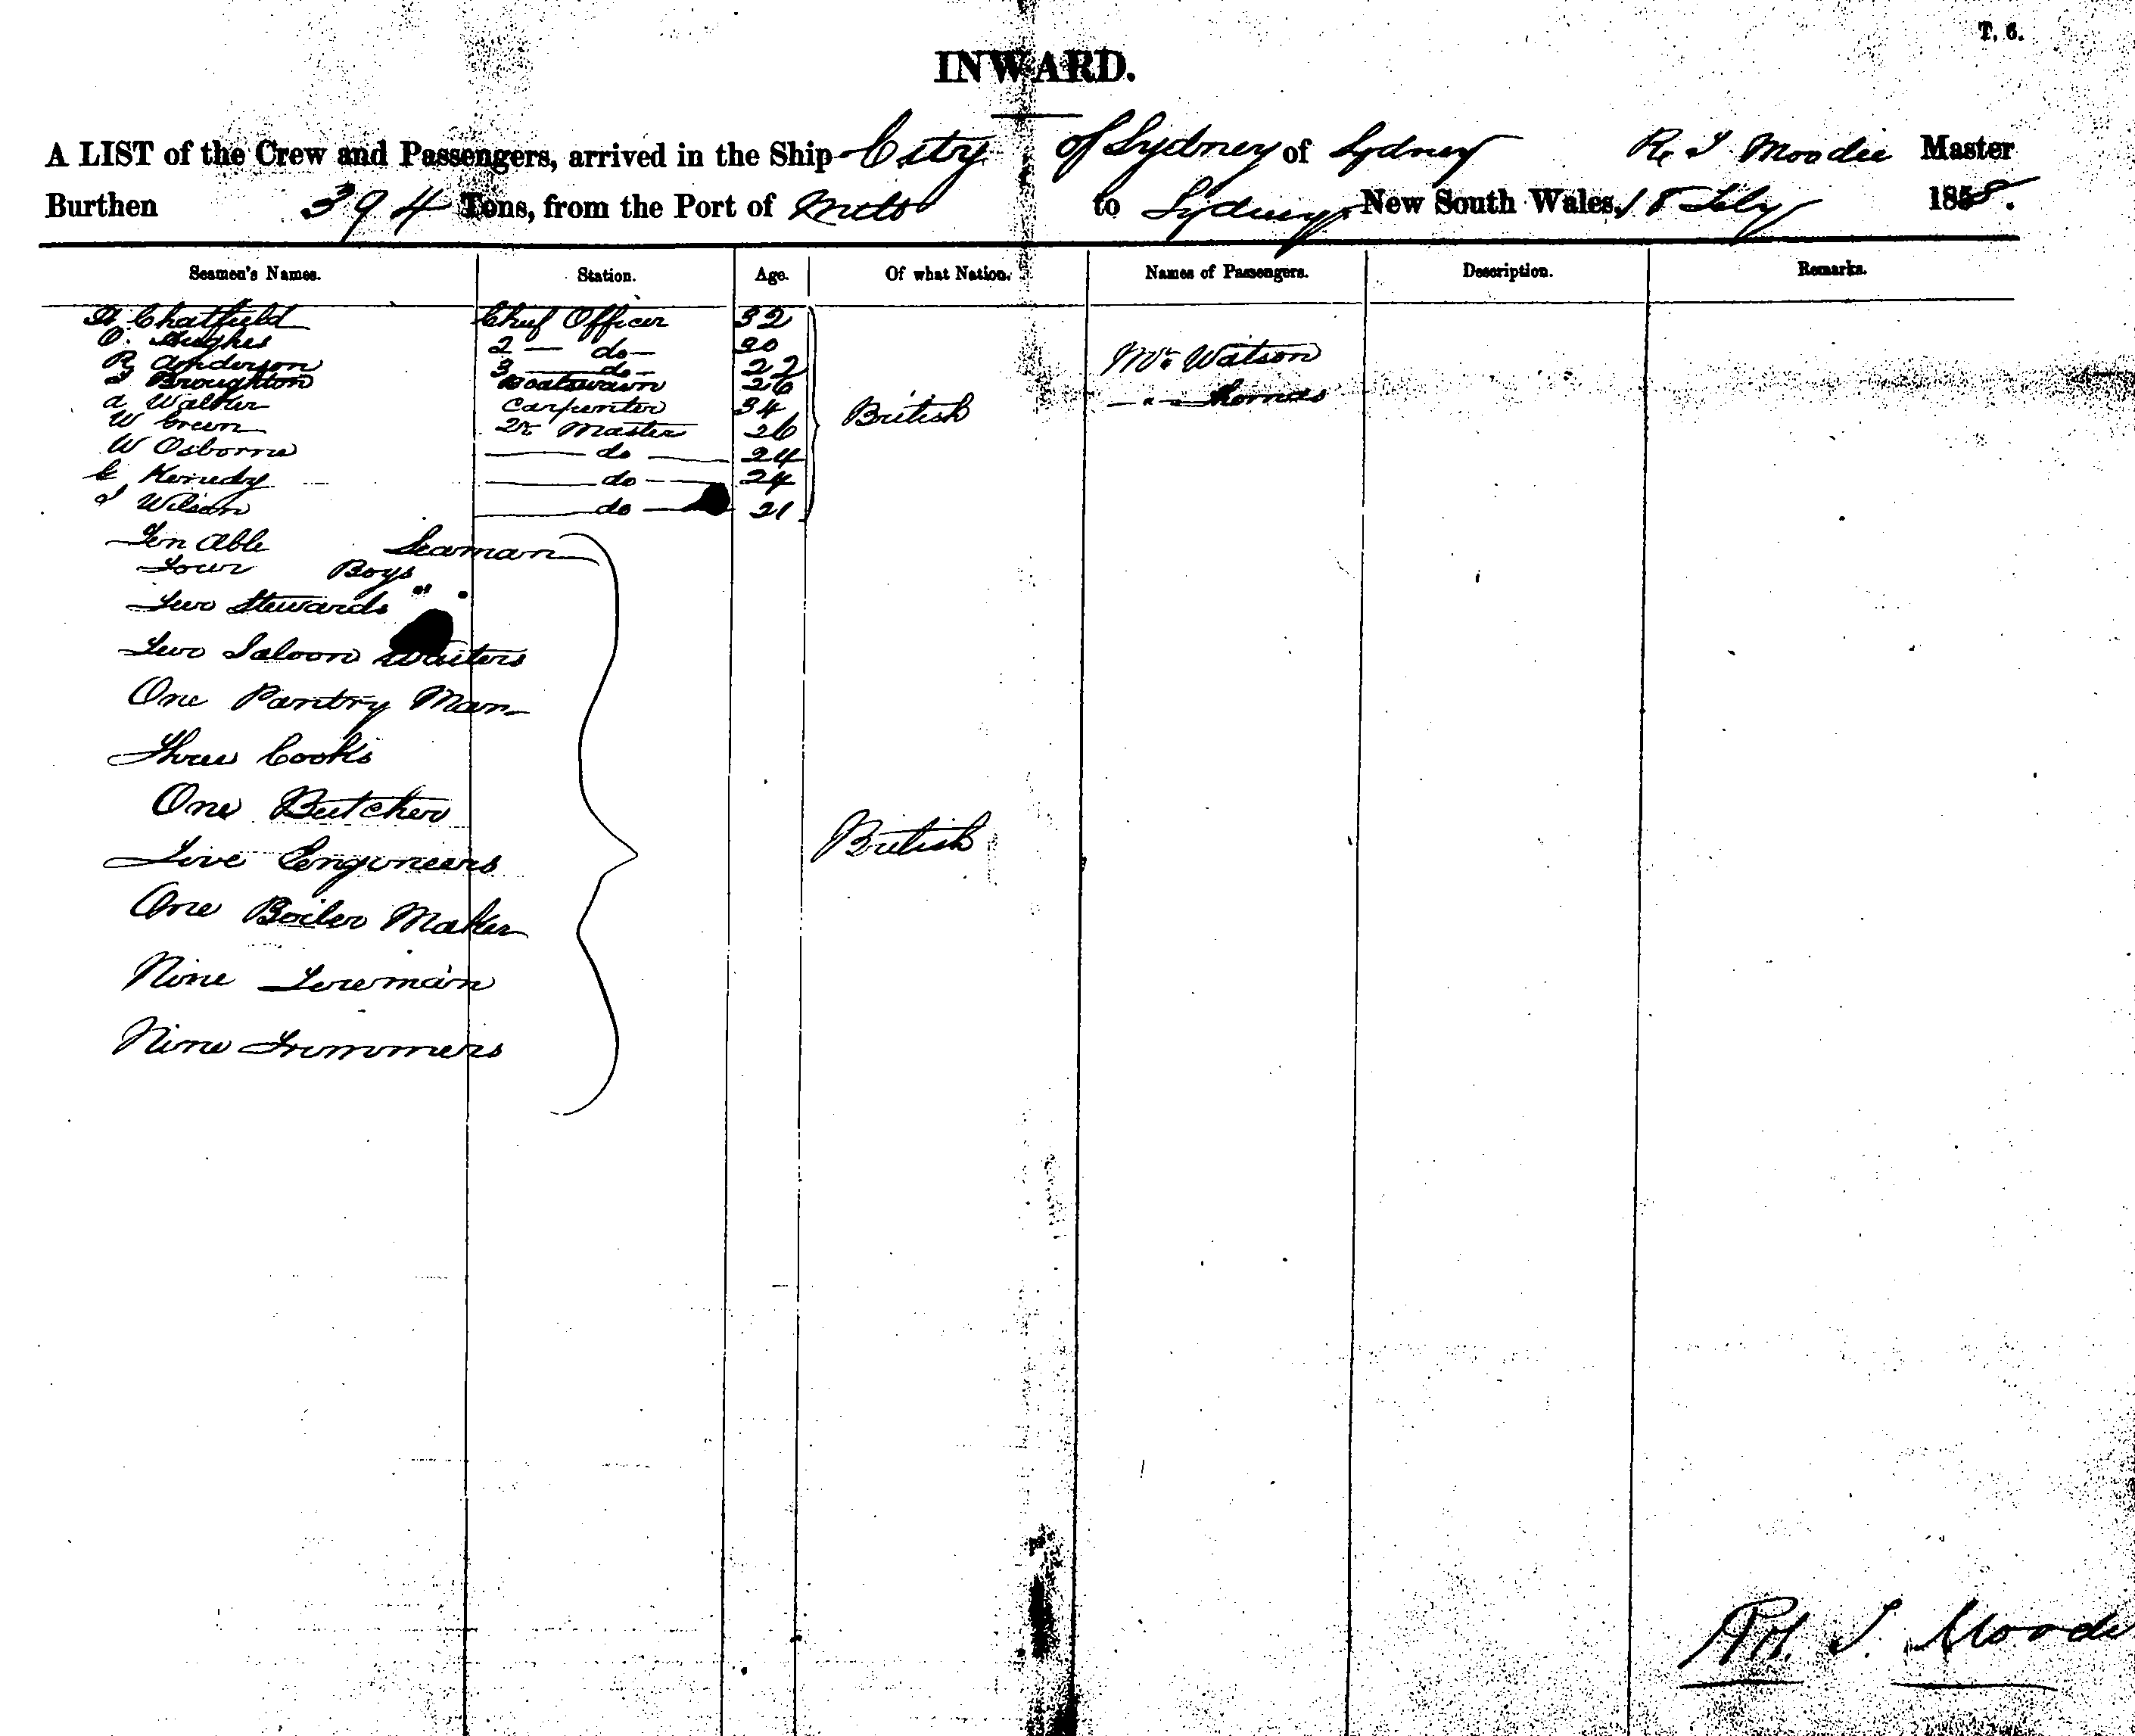 T. 6.
INWARD.
A LIST of the Crew and Passengers, arrived in the Ship City of Sydney of Sydney R. T Moodie Master
Burthen 394 Tons, from the Port of to Sydney, New South Wales, 18 1858.
Seamen's Names. Station. Age. Of what Nation. Names of Passengers. Description. Remarks.
Chatfield Chief Officer 32
O. Hughes 2 — do —
R Anderson 3 — do — 22
Broughton Boatswain 26 Mr. Watson
A Walker Carpenter 34 British — " — Thomas
W Green Qr Master 26
W Osborne — do — 24
Kenedy — do — 24
Wilson — do — 21
Ten Able Seaman
Four Boys
Two Stewards
Two Saloon Waiters
One Pantry Man
Three Cooks
One Butcher
Five Engineers British
One Boiler Maker
Nine Fireman
Nine Trimmers
Rd. T. Moodie